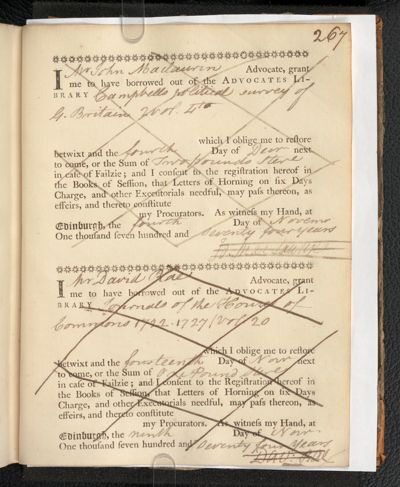 267
I Mr John Maclaurin Advocate, grant
me to have borrowed out of the ADVOCATES LI-
BRARY Campbells political survey of
G. Britain 2 vol. 4to
which I oblige me to restore
betwixt and the fourth Day of Decr next
to come, or the Sum of Two pounds Sterl
in case of Failzie; and I consent to the registration hereof in
the Books of Session, that Letters of Horning on six Days
Charge, and other Executorials needful, may pass thereon, as
effeirs, and thereto constitute
my Procurators. As witness my Hand, at
Edinburgh, the fourth Day of Novemr
One thousand seven hundred and Seventy four years
I Mr David Rae Advocate, grant
me to have borrowed out of the ADVOCATES LI-
BRARY Journals of the House of
Commons 1722-1727 Vol 20
which I oblige me to restore
betwixt and the fourteenth Day of Novr next
to come, or the Sum of One Pound Sterl
in case of Failzie; and I consent to the Registration hereof in
the Books of Session, that Letters of Horning on six Days
Charge, and other Executorials needful, may pass thereon, as
effeirs, and thereto constitute
my Procurators. As witness my Hand, at
Edinburgh, the ninth Day of Novr
One thousand seven hundred and Seventy four Years
Dav: Rae